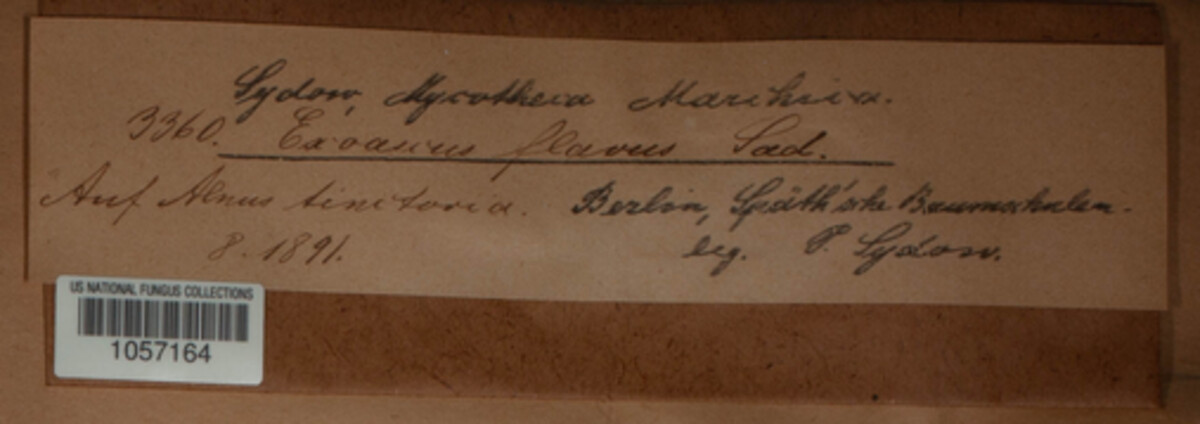 Sydow, Mycotheca Marchica.
3360. Exoascus flavus Sad.
Auf Alnus tinctoria. Berlin, Späth'sche Baumschulen.
8. 1891. leg. P. Sydow.
US NATIONAL FUNGUS COLLECTIONS
1057164